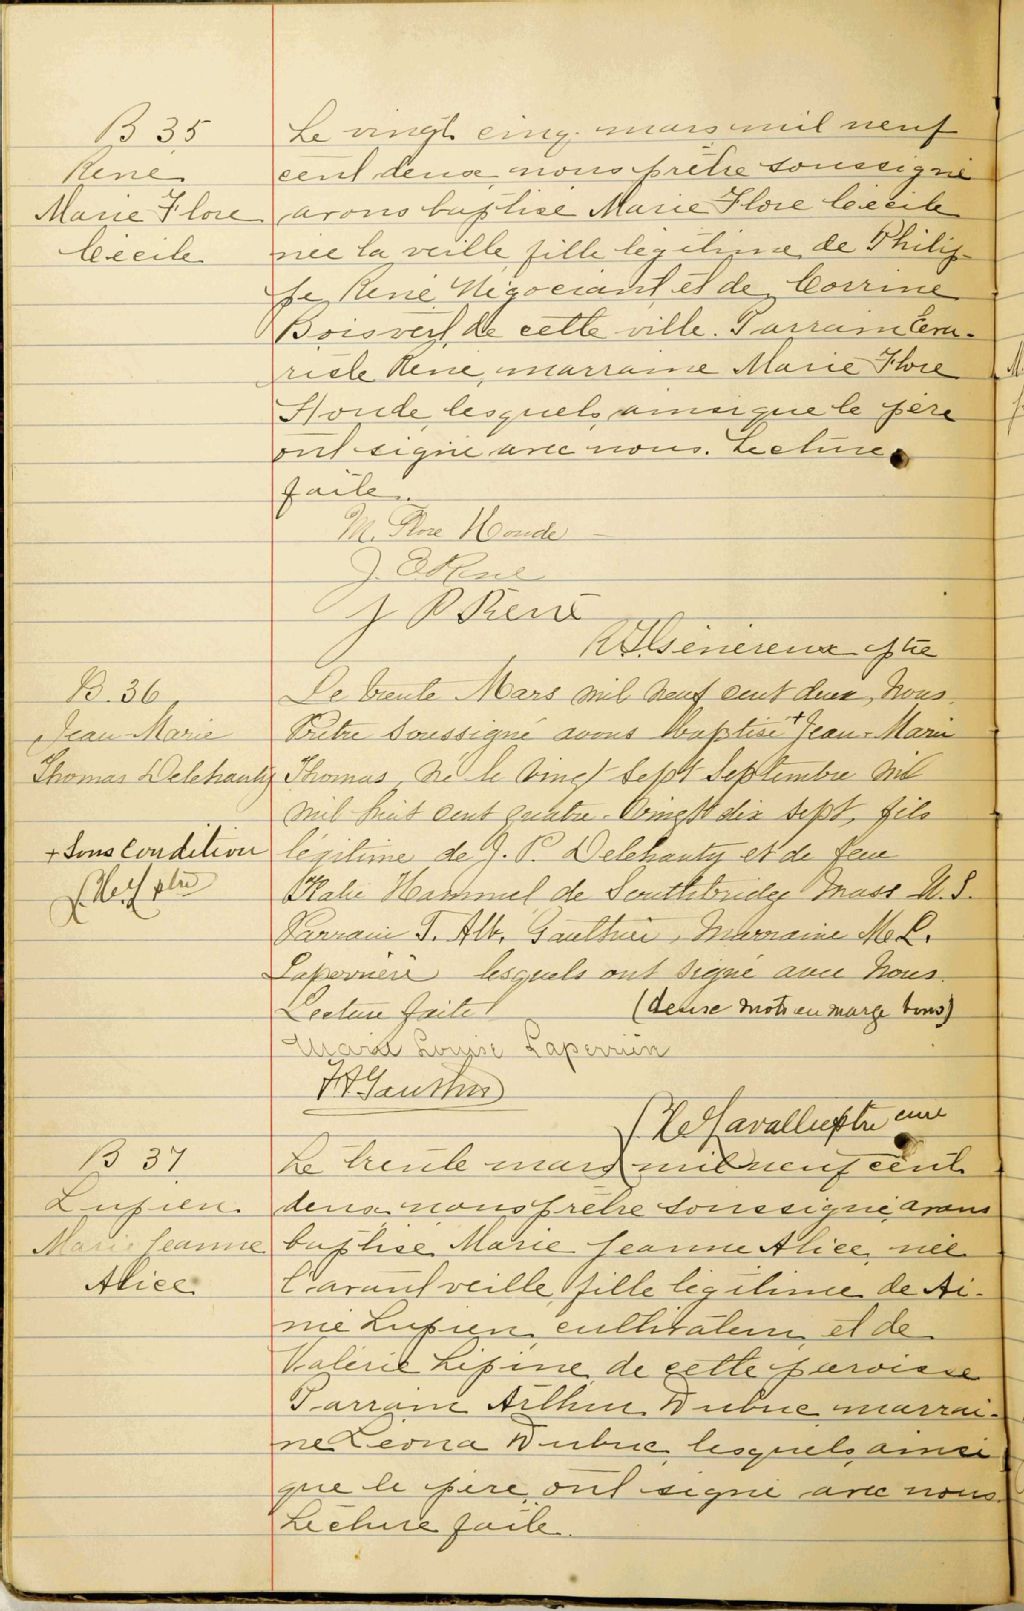 B 35
René
Marie Flore
Cécile
Le vingt cinq mars mil neuf
cent deux, nous prêtre soussigné
avons baptisé Marie Flore Cécile
née la veille fille légitime de Philip-
pe René, Négociant et de Corrine
Boisvert de cette ville. Parrain Eva-
riste René, marraine Marie Flore
Houde, lesquels, ainsi que le père
ont signé avec nous. Lecture
faite.
M. Flore Houde
J. E René
J P René
Généreux ptre
B. 36
Jean-Marie
Thomas Delehanty
+ sous condition
ptre
Le trente Mars mil neuf cent deux, Nous
Prêtre soussigné avons baptisé + Jean-Marie
Thomas, né le vingt sept Septembre mil
mil huit cent quatre-vingt dix sept, fils
légitime de J. P. Delehanty et de feue
Katie Hammel de Southbridge Mass U. S.
Parrain T. Alb. Gauthier, Marraine M. L.
Laperrière lesquels ont signé avec Nous.
Lecture faite (deux mots en marge bons)
Marie Louise Laperrière
Gauthier
Lavallée ptre curé
B 37
Lupien
Marie Jeanne
Alice
Le trente mars mil neuf cent
deux, nous prêtre soussigné, avons
baptisé Marie Jeanne Alice, née
l'avant veille, fille légitime de Ai-
mé Lupien, cultivateur, et de
Valérie Lépine, de cette paroisse
Parrain Arthur Dubuc marrai-
ne Léona Dubuc, lesquels, ainsi
que le père, ont signé avec nous.
Lecture faite.